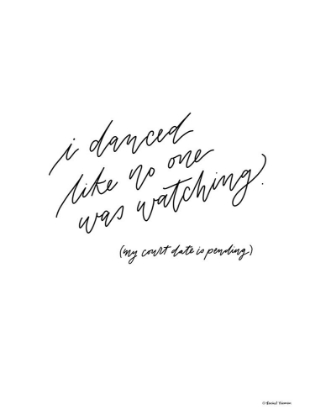 i danced
like no one
was watching.
(my court date is pending)